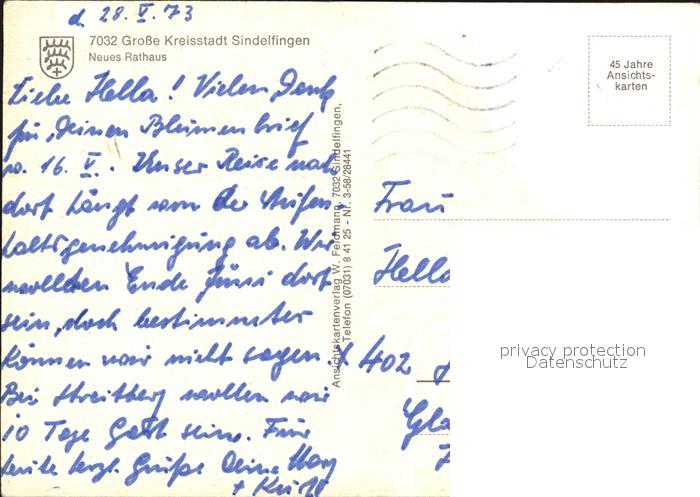 d. 28. V. 73
7032 Große Kreisstadt Sindelfingen
Neues Rathaus
45 Jahre
Ansichts-
karten
Liebe Hella! Vielen Dank
für Deinen Blumenbrief
v. 16. V. Unser Reise nach
dort hängt von der Aufen
haltsgenehmigung ab. Wir
wollten Ende Juni dort
sein, doch bestimmter
können wir nicht sagen.
Bei Streitberg wollen wir
10 Tage Gast sein. Für
heute herzl. Grüße Deine
+ Kurt
Ansichtskartenverlag W. Feldmann, 7032 Sindelfingen,
Telefon (07031) 8 41 25 - Nr. 3-58/28441
Frau
Hella
402
Gla
privacy protection
Datenschutz